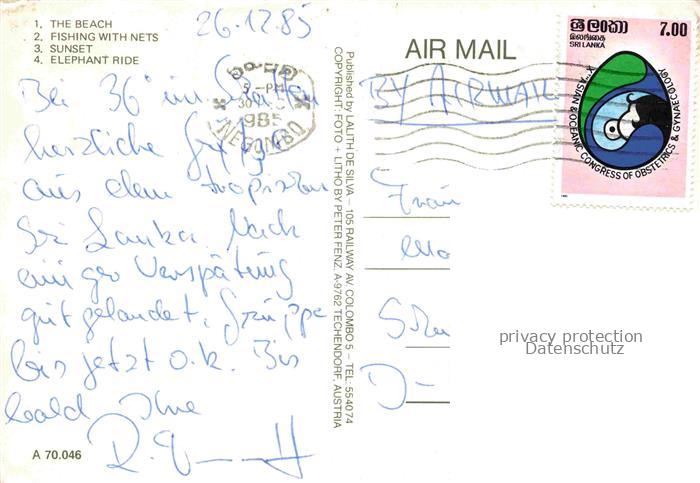 1. THE BEACH
2. FISHING WITH NETS
3. SUNSET
4. ELEPHANT RIDE
26.12.85
Bei 36° im Schatten
herzliche Grüße
aus dem tropischen
Sri Lanka. Nach
einiger Verspätung
gut gelandet, Gruppe
bis jetzt o.k. Bis
bald Ihre
A 70.046
5-PM
30
1985
NEGOMBO
Published by LALITH DE SILVA – 105 RAILWAY AV. COLOMBO 5 – TEL: 554074
COPYRIGHT: FOTO + LITHO BY PETER FENZ, A-9762 TECHENDORF, AUSTRIA
AIR MAIL
BY AIRMAIL
Frau
ශ්‍රී ලංකා
இலங்கை
SRI LANKA
7.00
Xth ASIAN & OCEANIC CONGRESS OF OBSTETRICS & GYNAECOLOGY
privacy protection
Datenschutz